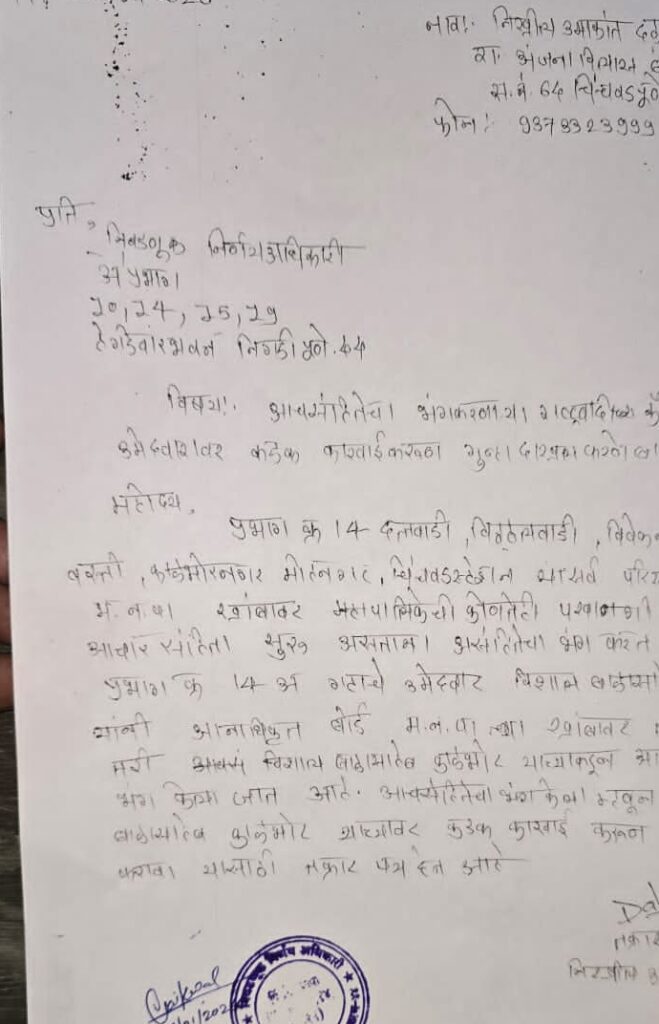 नाव: निखील उमाकांत दळ
रा. अंजना विलास
स.नं. 64 चिंचवड पुणे
फोन: 9373323999
प्रति,
निवडणूक निर्णय अधिकारी
अ प्रभाग
10, 14, 15, 19
हेगडेवार भवन निगडी पुणे. 44
विषय: आचारसंहितेचा भंग करणाऱ्या राष्ट्रवादीच्या
उमेदवारावर कडक कारवाई करून गुन्हा दाखल करणे बा
महोदय,
प्रभाग क्र 14 दत्तवाडी, विठ्ठलवाडी, विवेक
वस्ती, काळभोरनगर मोहननगर, चिंचवड स्टेशन या सर्व परि
म.न.पा खांबावर महापालिकेची कोणतेही परवानगी
आचार संहिता सुरू असताना असंहितेचा भंग करत
प्रभाग क्र 14 अ गटाचे उमेदवार विशाल बाळासा
यांनी अनाधिकृत बोर्ड म.न.पा च्या खांबावर
तरी विशाल बाळासाहेब काळभोर यांच्याकडून आ
भंग केला जात आहे. आचारसंहितेचा भंग केला म्हणून
बाळासाहेब काळभोर यांच्यावर कडक कारवाई करून
करावा यासाठी तक्रार पत्र देत आहे
तक्रार
निखील उ
निवडणूक निर्णय अधिकारी